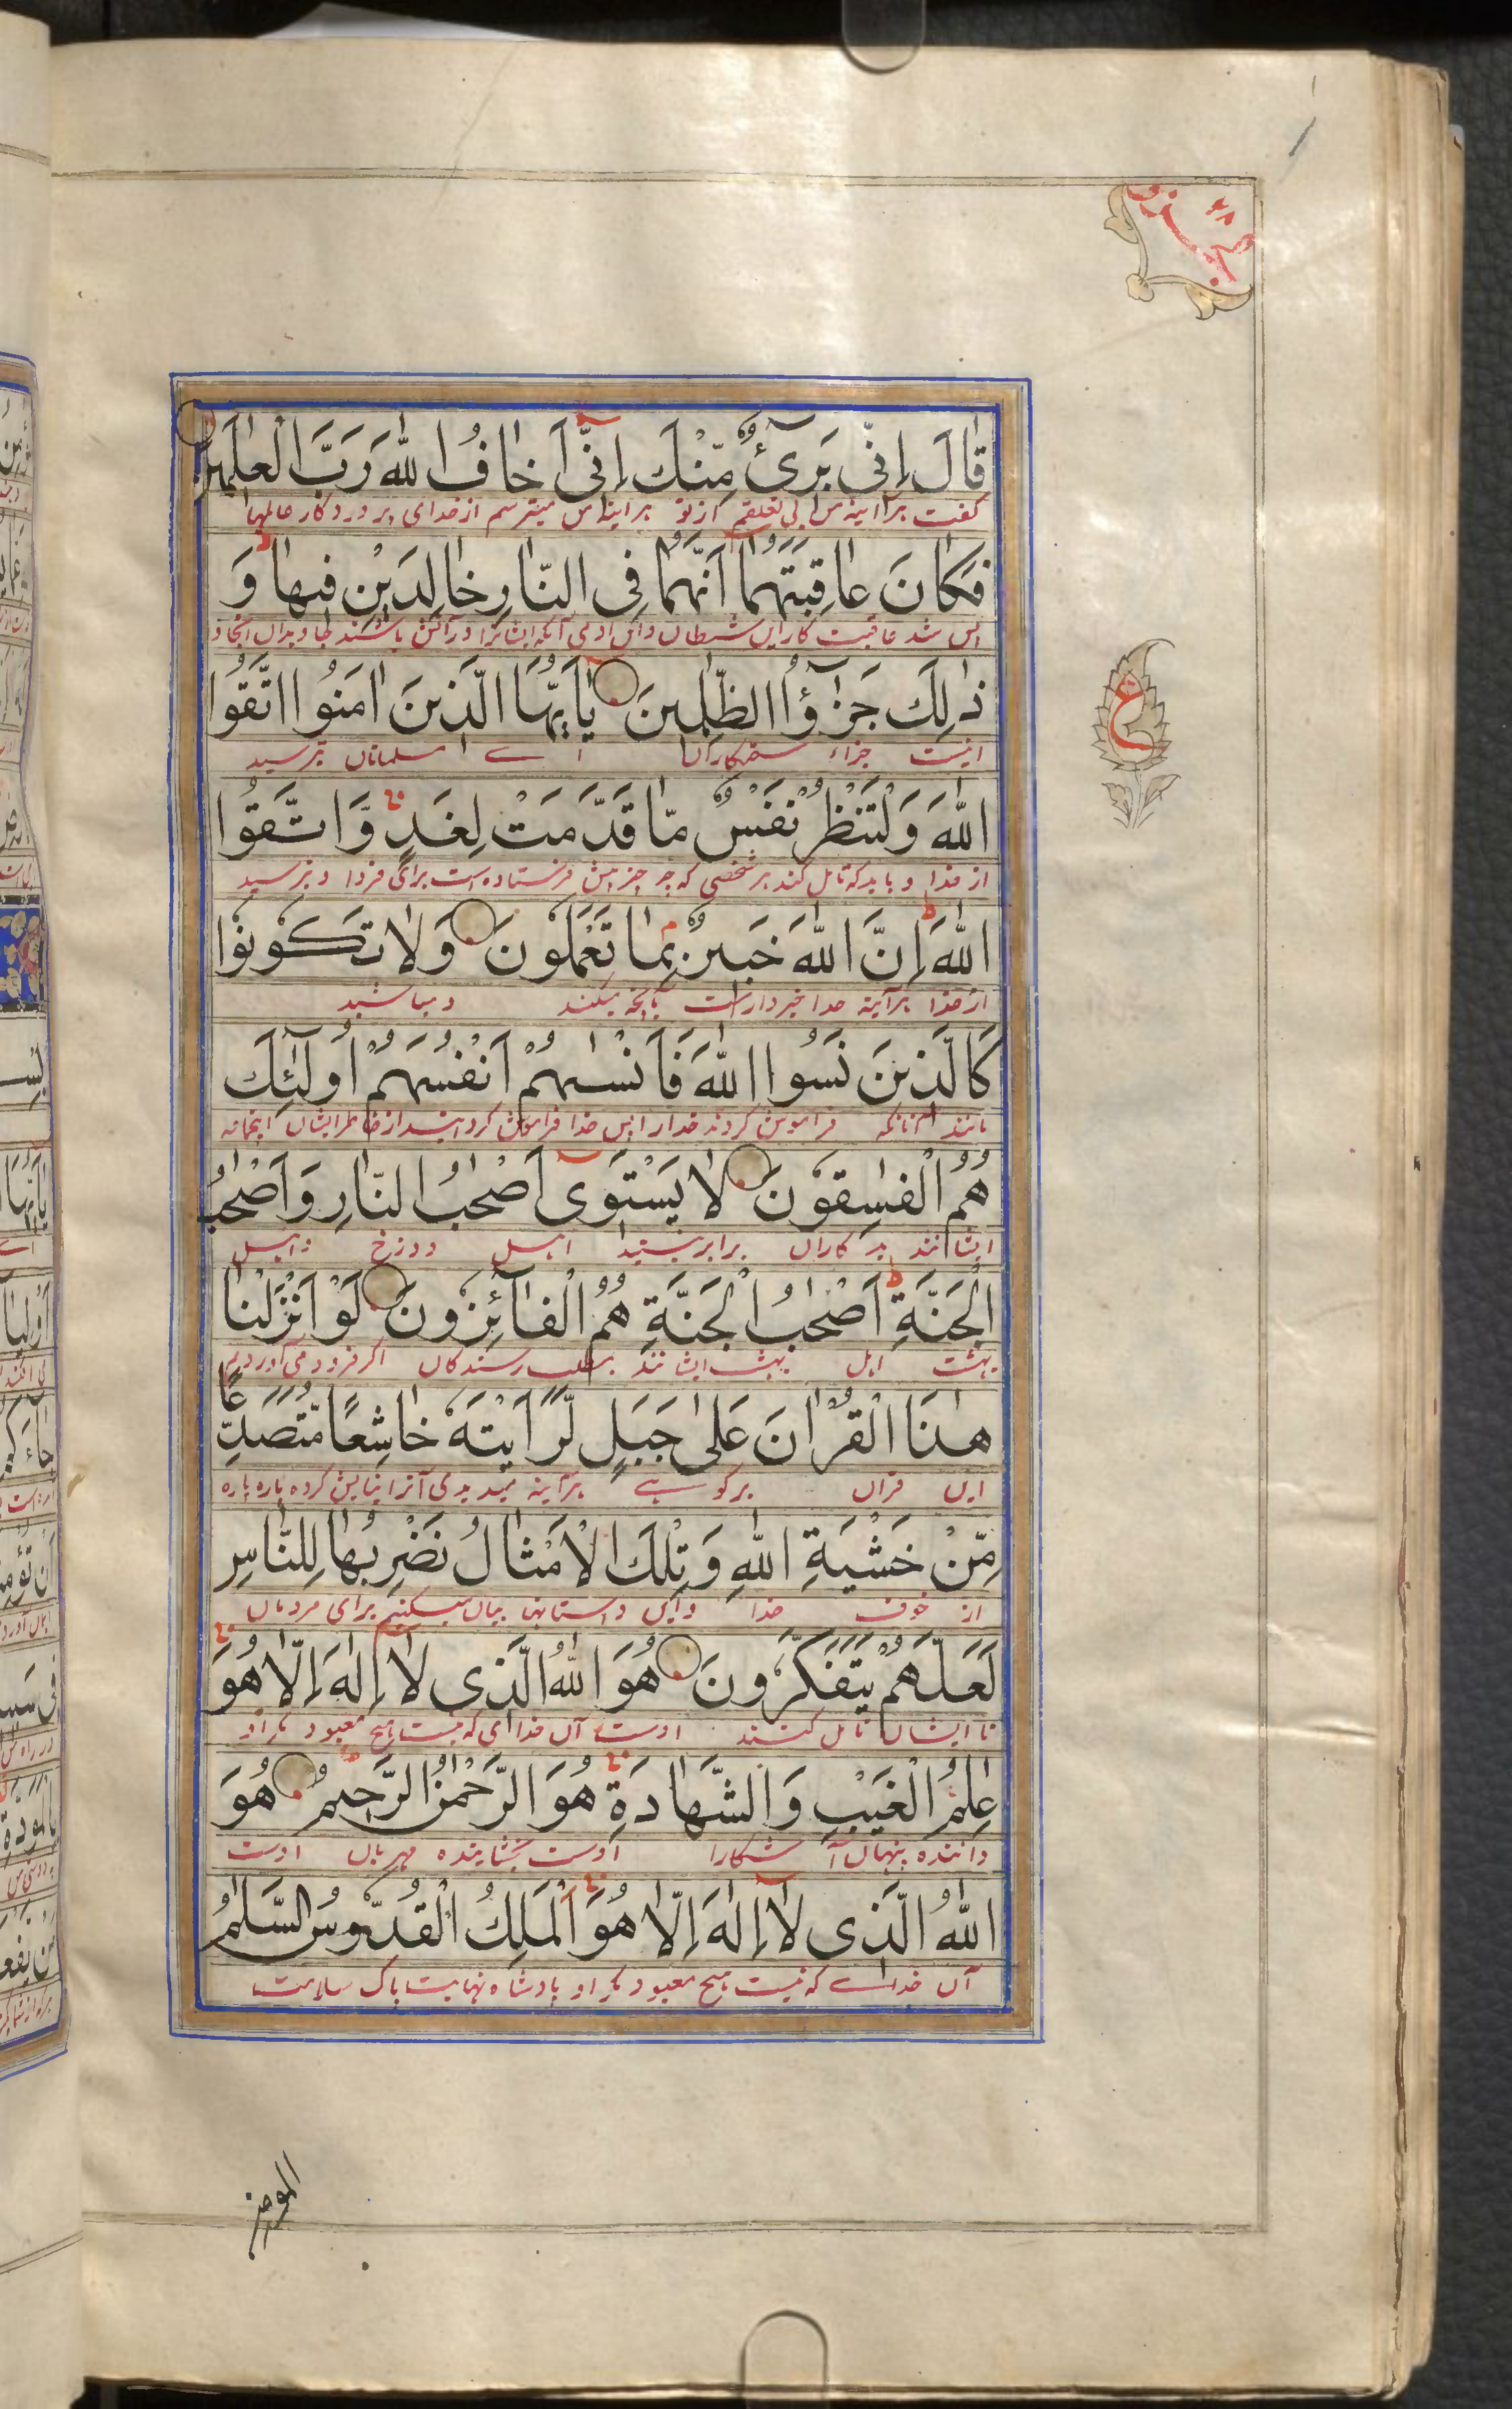 جزو ٢٨
قَالَ اِنِّی بَرِیٓءٌ مِّنْكَ اِنِّیٓ اَخَافُ اللّٰهَ رَبَّ الْعٰلَمِیْنَ
گفت هرآئینه من بی تعلقم از تو هرآئینه من میترسم از خدای پروردگار عالمها
فَكَانَ عَاقِبَتَهُمَآ اَنَّهُمَا فِی النَّارِ خَالِدَیْنِ فِیْهَا وَ
پس شد عاقبت كار این شیطان و این آدمی آنکه ایشانرا در آتش باشند جاویدان آنجا و
ذٰلِكَ جَزٰٓؤُا الظّٰلِمِیْنَ یٰٓاَیُّهَا الَّذِیْنَ اٰمَنُوا اتَّقُوا
اینست جزاء ستمکاران اے مسلمانان بترسید
ع
اللّٰهَ وَلْتَنْظُرْ نَفْسٌ مَّا قَدَّمَتْ لِغَدٍ وَّاتَّقُوا
از خدا و باید که تامل کند هر شخصی که چه چیز پیش فرستاده است برای فردا و بترسید
اللّٰهَ اِنَّ اللّٰهَ خَبِیْرٌۢ بِمَا تَعْمَلُوْنَ وَلَا تَكُوْنُوْا
از خدا هرآینه خدا خبردارست بآنچه میکنید و مباشید
كَالَّذِیْنَ نَسُوا اللّٰهَ فَاَنْسٰىهُمْ اَنْفُسَهُمْ اُولٰٓئِكَ
مانند آنانکه فراموش کردند خدارا پس خدا فراموش گردانید از خاطر ایشان
هُمُ الْفٰسِقُوْنَ لَا یَسْتَوِیٓ اَصْحٰبُ النَّارِ وَاَصْحٰبُ
ایشانند بدکاران برابر نیستند اهل دوزخ و اهل
الْجَنَّةِ اَصْحٰبُ الْجَنَّةِ هُمُ الْفَآئِزُوْنَ لَوْ اَنْزَلْنَا
بهشت اهل بهشت ایشانند بمطلب رسندگان اگر فرود می آوردیم
هٰذَا الْقُرْاٰنَ عَلٰی جَبَلٍ لَّرَاَیْتَهٗ خَاشِعًا مُّتَصَدِّعًا
این قرآن بر کوهے هرآینه میدیدی آنرا نیایش کرده پاره پاره
مِّنْ خَشْیَةِ اللّٰهِ وَتِلْكَ الْاَمْثَالُ نَضْرِبُهَا لِلنَّاسِ
از خوف خدا و این داستانها بیان میکنیم برای مردمان
لَعَلَّهُمْ یَتَفَكَّرُوْنَ هُوَ اللّٰهُ الَّذِی لَآ اِلٰهَ اِلَّا هُوَ
تا ایشان تامل کنند اوست آن خدای که نیست هیچ معبود مگر او
عٰلِمُ الْغَیْبِ وَالشَّهَادَةِ هُوَ الرَّحْمٰنُ الرَّحِیْمُ هُوَ
داننده پنهان آشکارا اوست بخشاینده مهربان اوست
اللّٰهُ الَّذِی لَآ اِلٰهَ اِلَّا هُوَ اَلْمَلِكُ الْقُدُّوْسُ السَّلٰمُ
آن خداے که نیست هیچ معبود مگر او پادشاه نهایت پاک سلامت
المومن